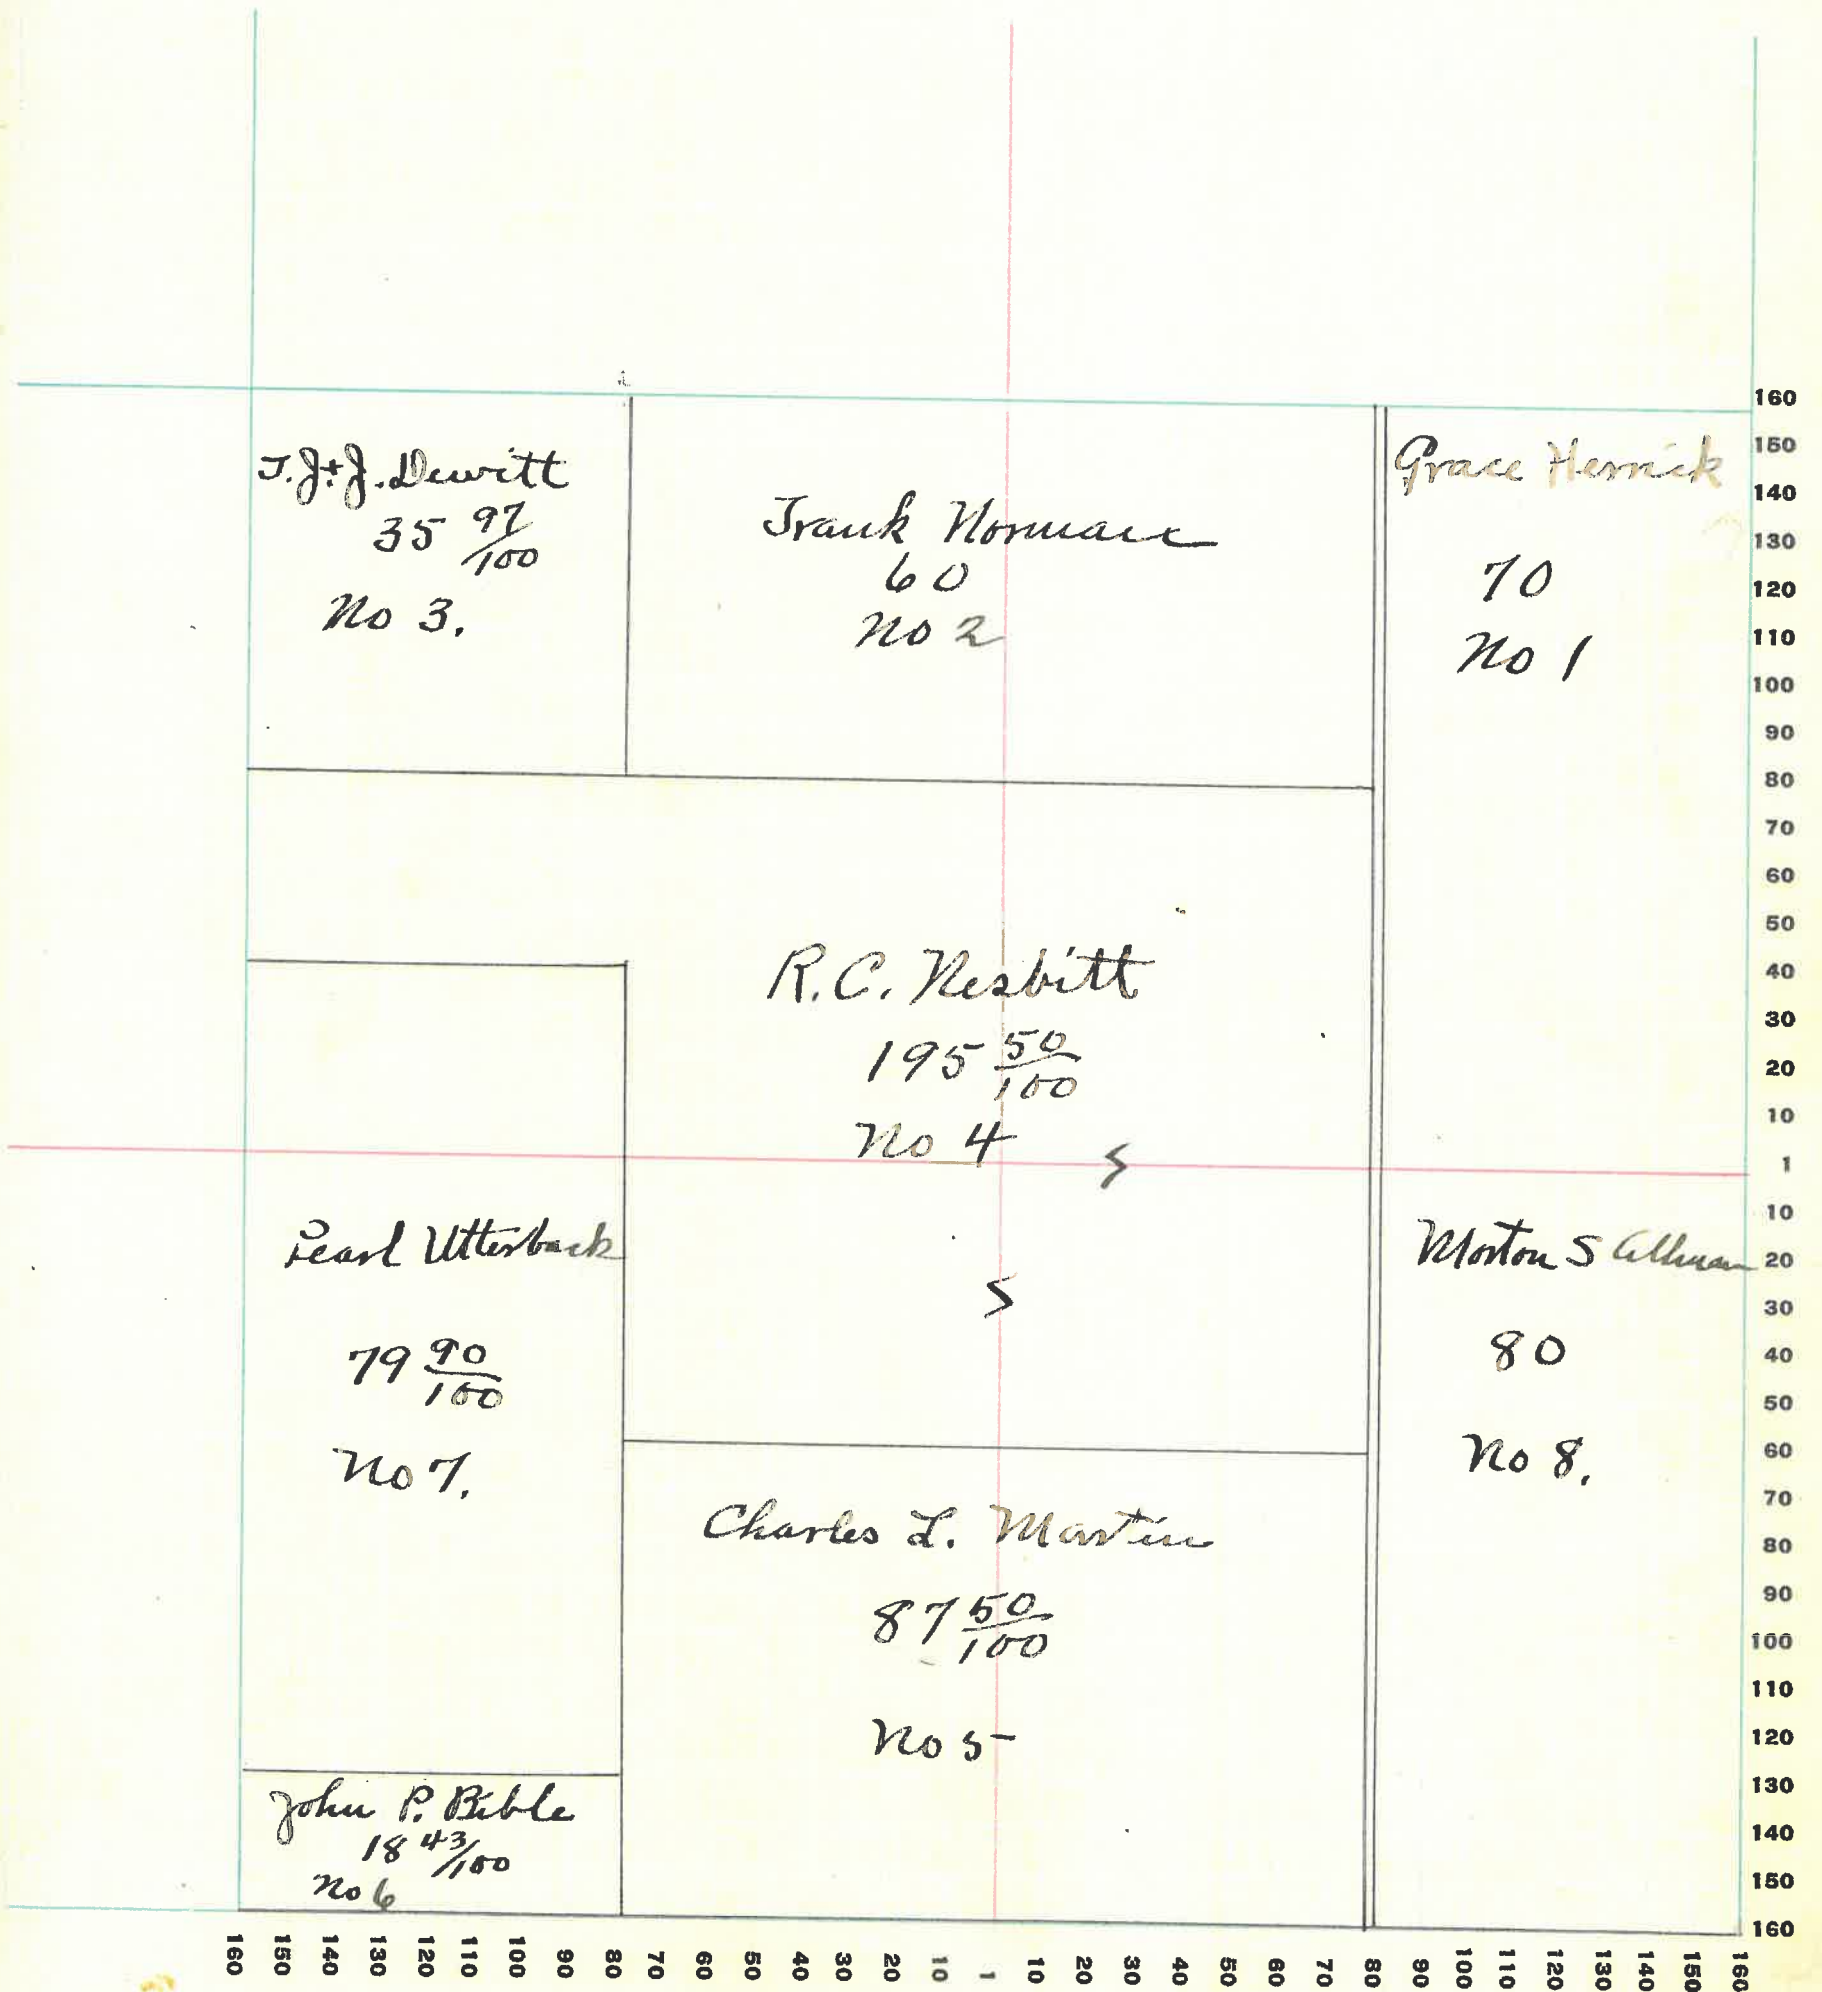 T. J. + J. Dewitt
35 97/100
No 3.
Frank Norman
60
No 2
Grace Herrick
70
No 1
R. C. Nesbitt
195 50/100
No 4
S
S
Pearl Utterback
79 90/100
No 7.
Morton S Allman
80
No 8.
Charles L. Martin
87 50/100
No 5
John P. Bible
18 43/100
No 6
160
150
140
130
120
110
100
90
80
70
60
50
40
30
20
10
1
10
20
30
40
50
60
70
80
90
100
110
120
130
140
150
160
160 150 140 130 120 110 100 90 80 70 60 50 40 30 20 10 1 10 20 30 40 50 60 70 80 90 100 110 120 130 140 150 160